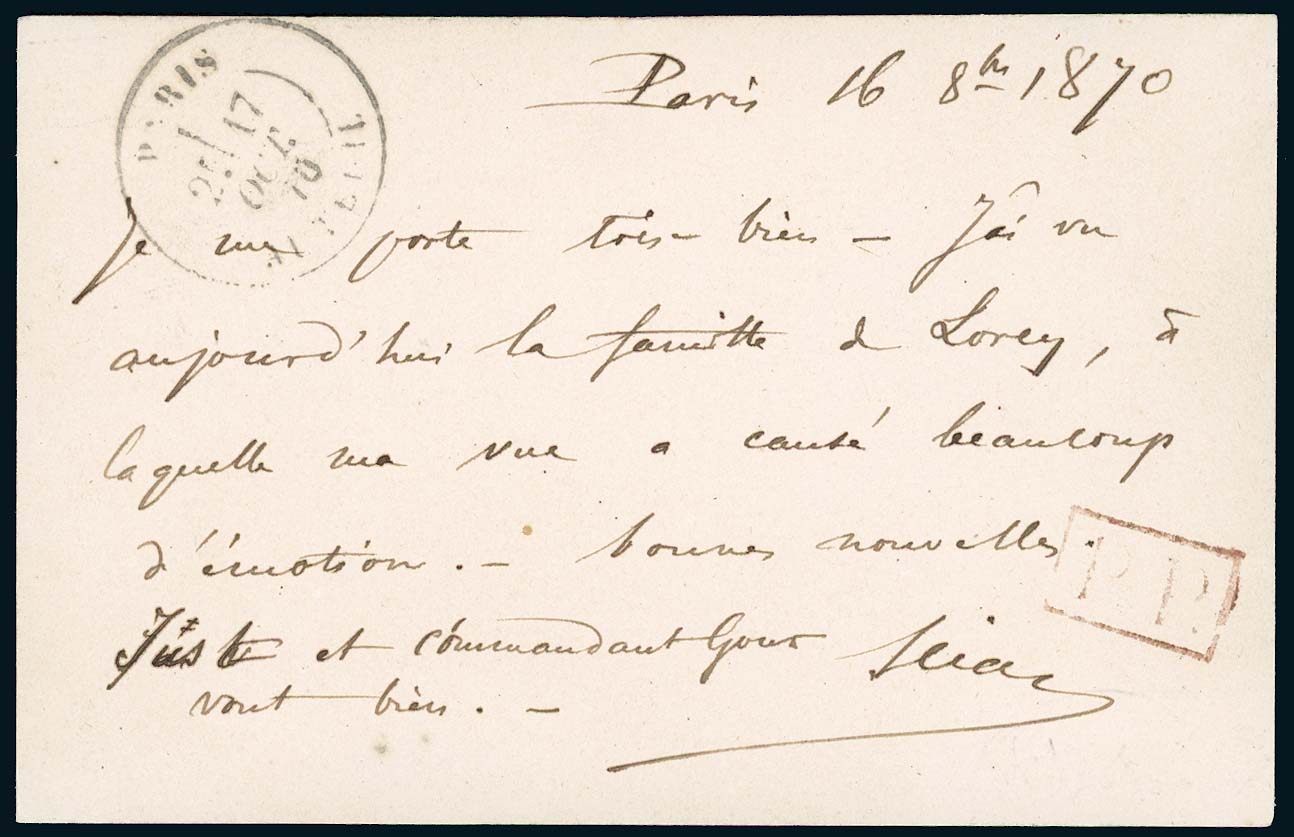 PARIS
2E/ 17 OCT. 70
AUTEUIL
Paris 16 8bre 1870
Je me porte très bien – J'ai vu
aujourd'hui la famille de Lorey, à
laquelle ma vue a causé beaucoup
d'émotion. – bonnes nouvelles.
P.P.
Juste et commandant
vont bien. –